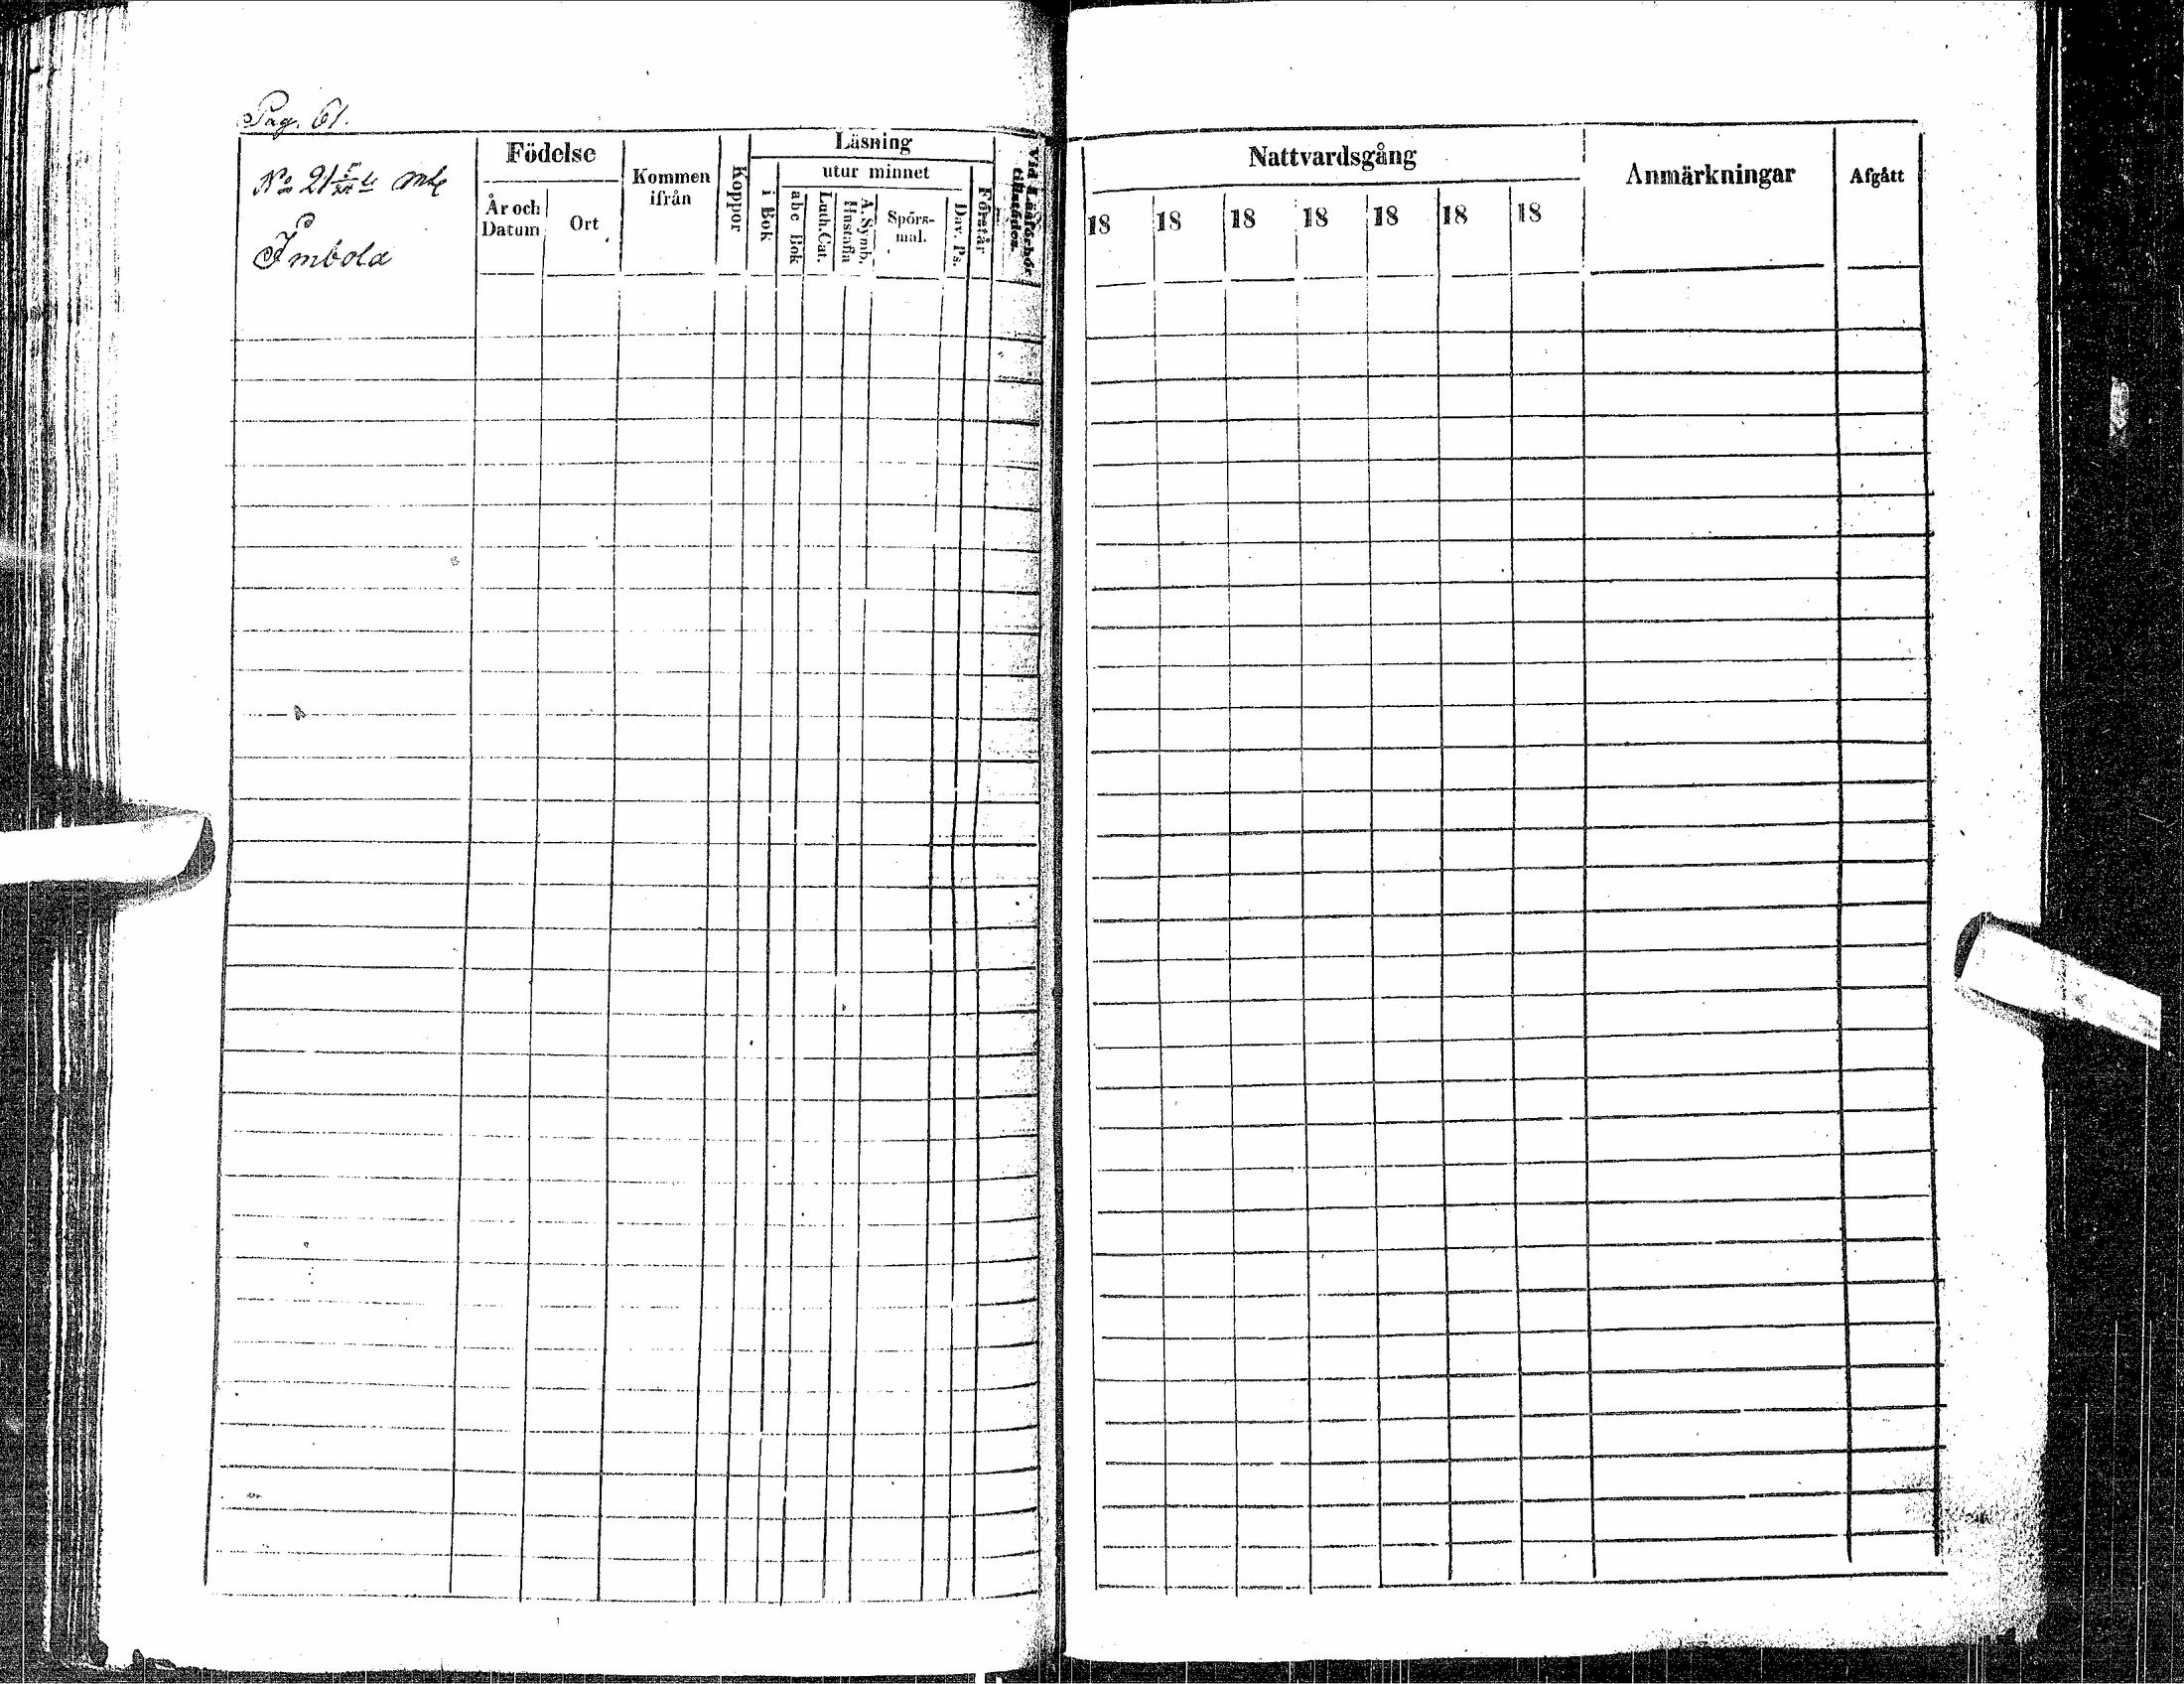 Pag. 61.
No 21
Imbola
Födelse
År och Datum
Ort
Kommen ifrån
Koppor
Läsning
i Bok
utur minnet
abc Bok
Luth. Cat.
A. Symb. Hustafla
Spörs-
mal.
Dav. Ps.
Förstår
Vid Läsförhör tillstädes.
Nattvardsgång
18 18 18 18 18 18 18
Anmärkningar
Afgått